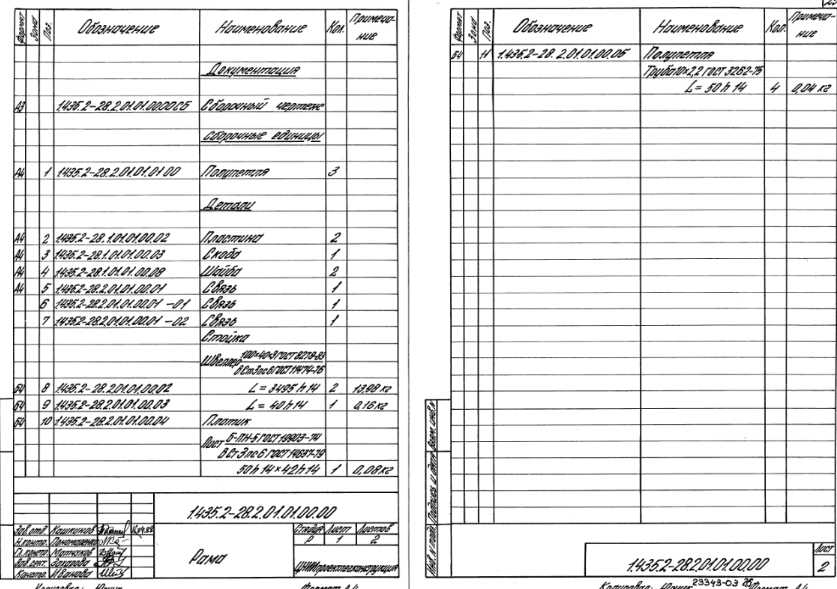 Формат Зона Поз. Обозначение Наименование Кол. Примечание
Документация
А3 1.435.2-28.2.01.01.00.00СБ Сборочный чертеж
Сборочные единицы
А4 1 1.435.2-28.2.01.01.01.00 Полупетля 3
Детали
А4 2 1.435.2-28.1.01.01.00.02 Пластина 2
А4 3 1.435.2-28.1.01.01.00.03 Скоба 1
А4 4 1.435.2-28.1.01.01.00.09 Шайба 2
А4 5 1.435.2-28.2.01.01.00.01 Связь 1
6 1.435.2-28.2.01.01.00.01 -01 Связь 1
7 1.435.2-28.2.01.01.00.01 -02 Связь 1
Стойка
Швеллер 100×40×3 ГОСТ 8278-83
В Ст3пс6 ГОСТ 11474-76
БЧ 8 1.435.2-28.2.01.01.00.02 L = 3495 h 14 2 13,98 кг
БЧ 9 1.435.2-28.2.01.01.00.03 L = 40 h 14 1 0,16 кг
БЧ 10 1.435.2-28.2.01.01.00.04 Платик
Лист Б-ПН-5 ГОСТ 19903-74
В Ст 3 пс 6 ГОСТ 14637-79
50 h 14 × 42 h 14 1 0,08 кг
1.435.2-28.2.01.01.00.00
Зав. отд. Кошкинов
Н.контр.
Гл. констр.
Зав. сект. Захарова
Контр. Иванова
Рама
Стадия Лист Листов
Р 1 2
ЦНИИпроектлегконструкция
Копировал: Юшик Формат А4
Формат Зона Поз. Обозначение Наименование Кол. Примечание
БЧ 11 1.435.2-28.2.01.01.00.05 Полупетля
Труба 10×2,2 ГОСТ 3262-75
L = 50 h 14 4 0,04 кг
Инв. № подл. Подпись и дата Взам. инв. №
1.435.2-28.2.01.01.00.00
Лист
2
Копировал: Юшик 23343-03 Формат А4